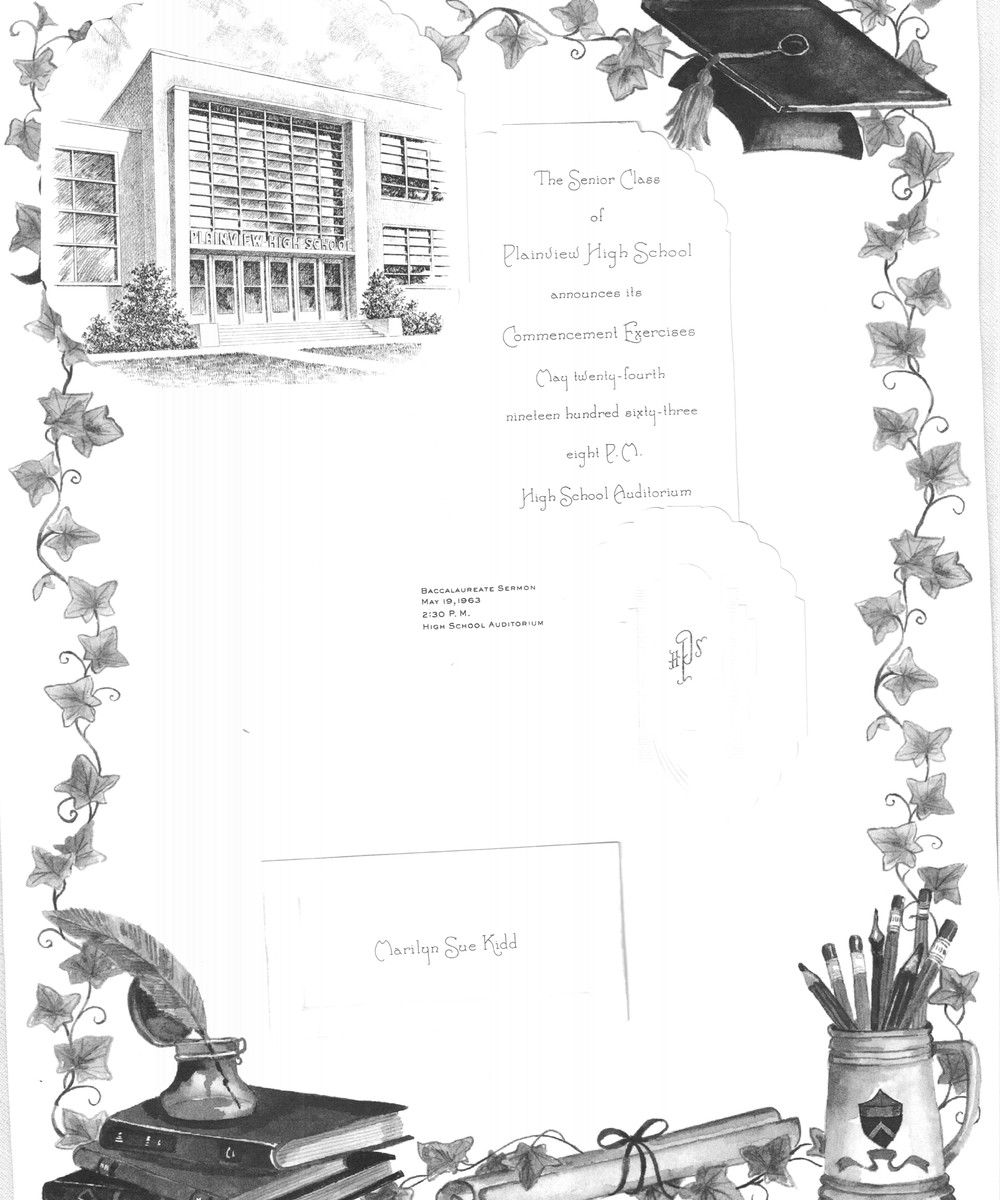 PLAINVIEW HIGH SCHOOL
The Senior Class
of
Plainview High School
announces its
Commencement Exercises
May twenty-fourth
nineteen hundred sixty-three
eight P.M.
High School Auditorium
BACCALAUREATE SERMON
MAY 19, 1963
2:30 P. M.
HIGH SCHOOL AUDITORIUM
HPS
Marilyn Sue Kidd